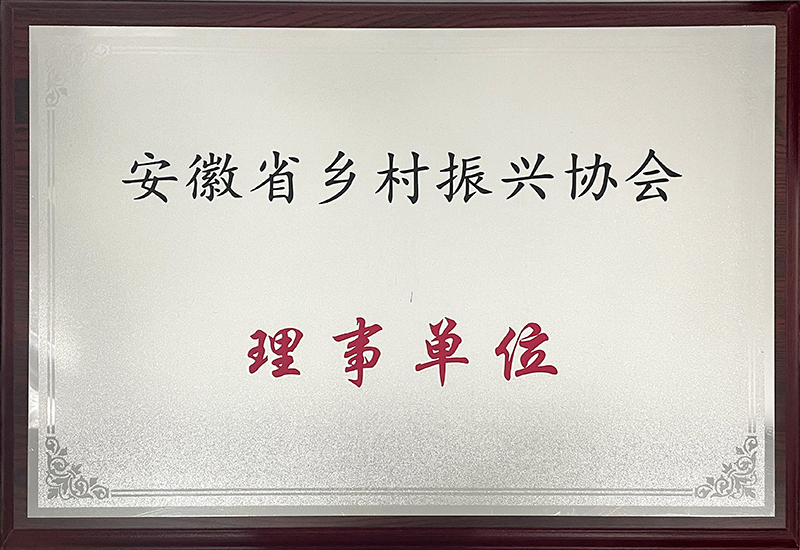 安徽省乡村振兴协会
理事单位